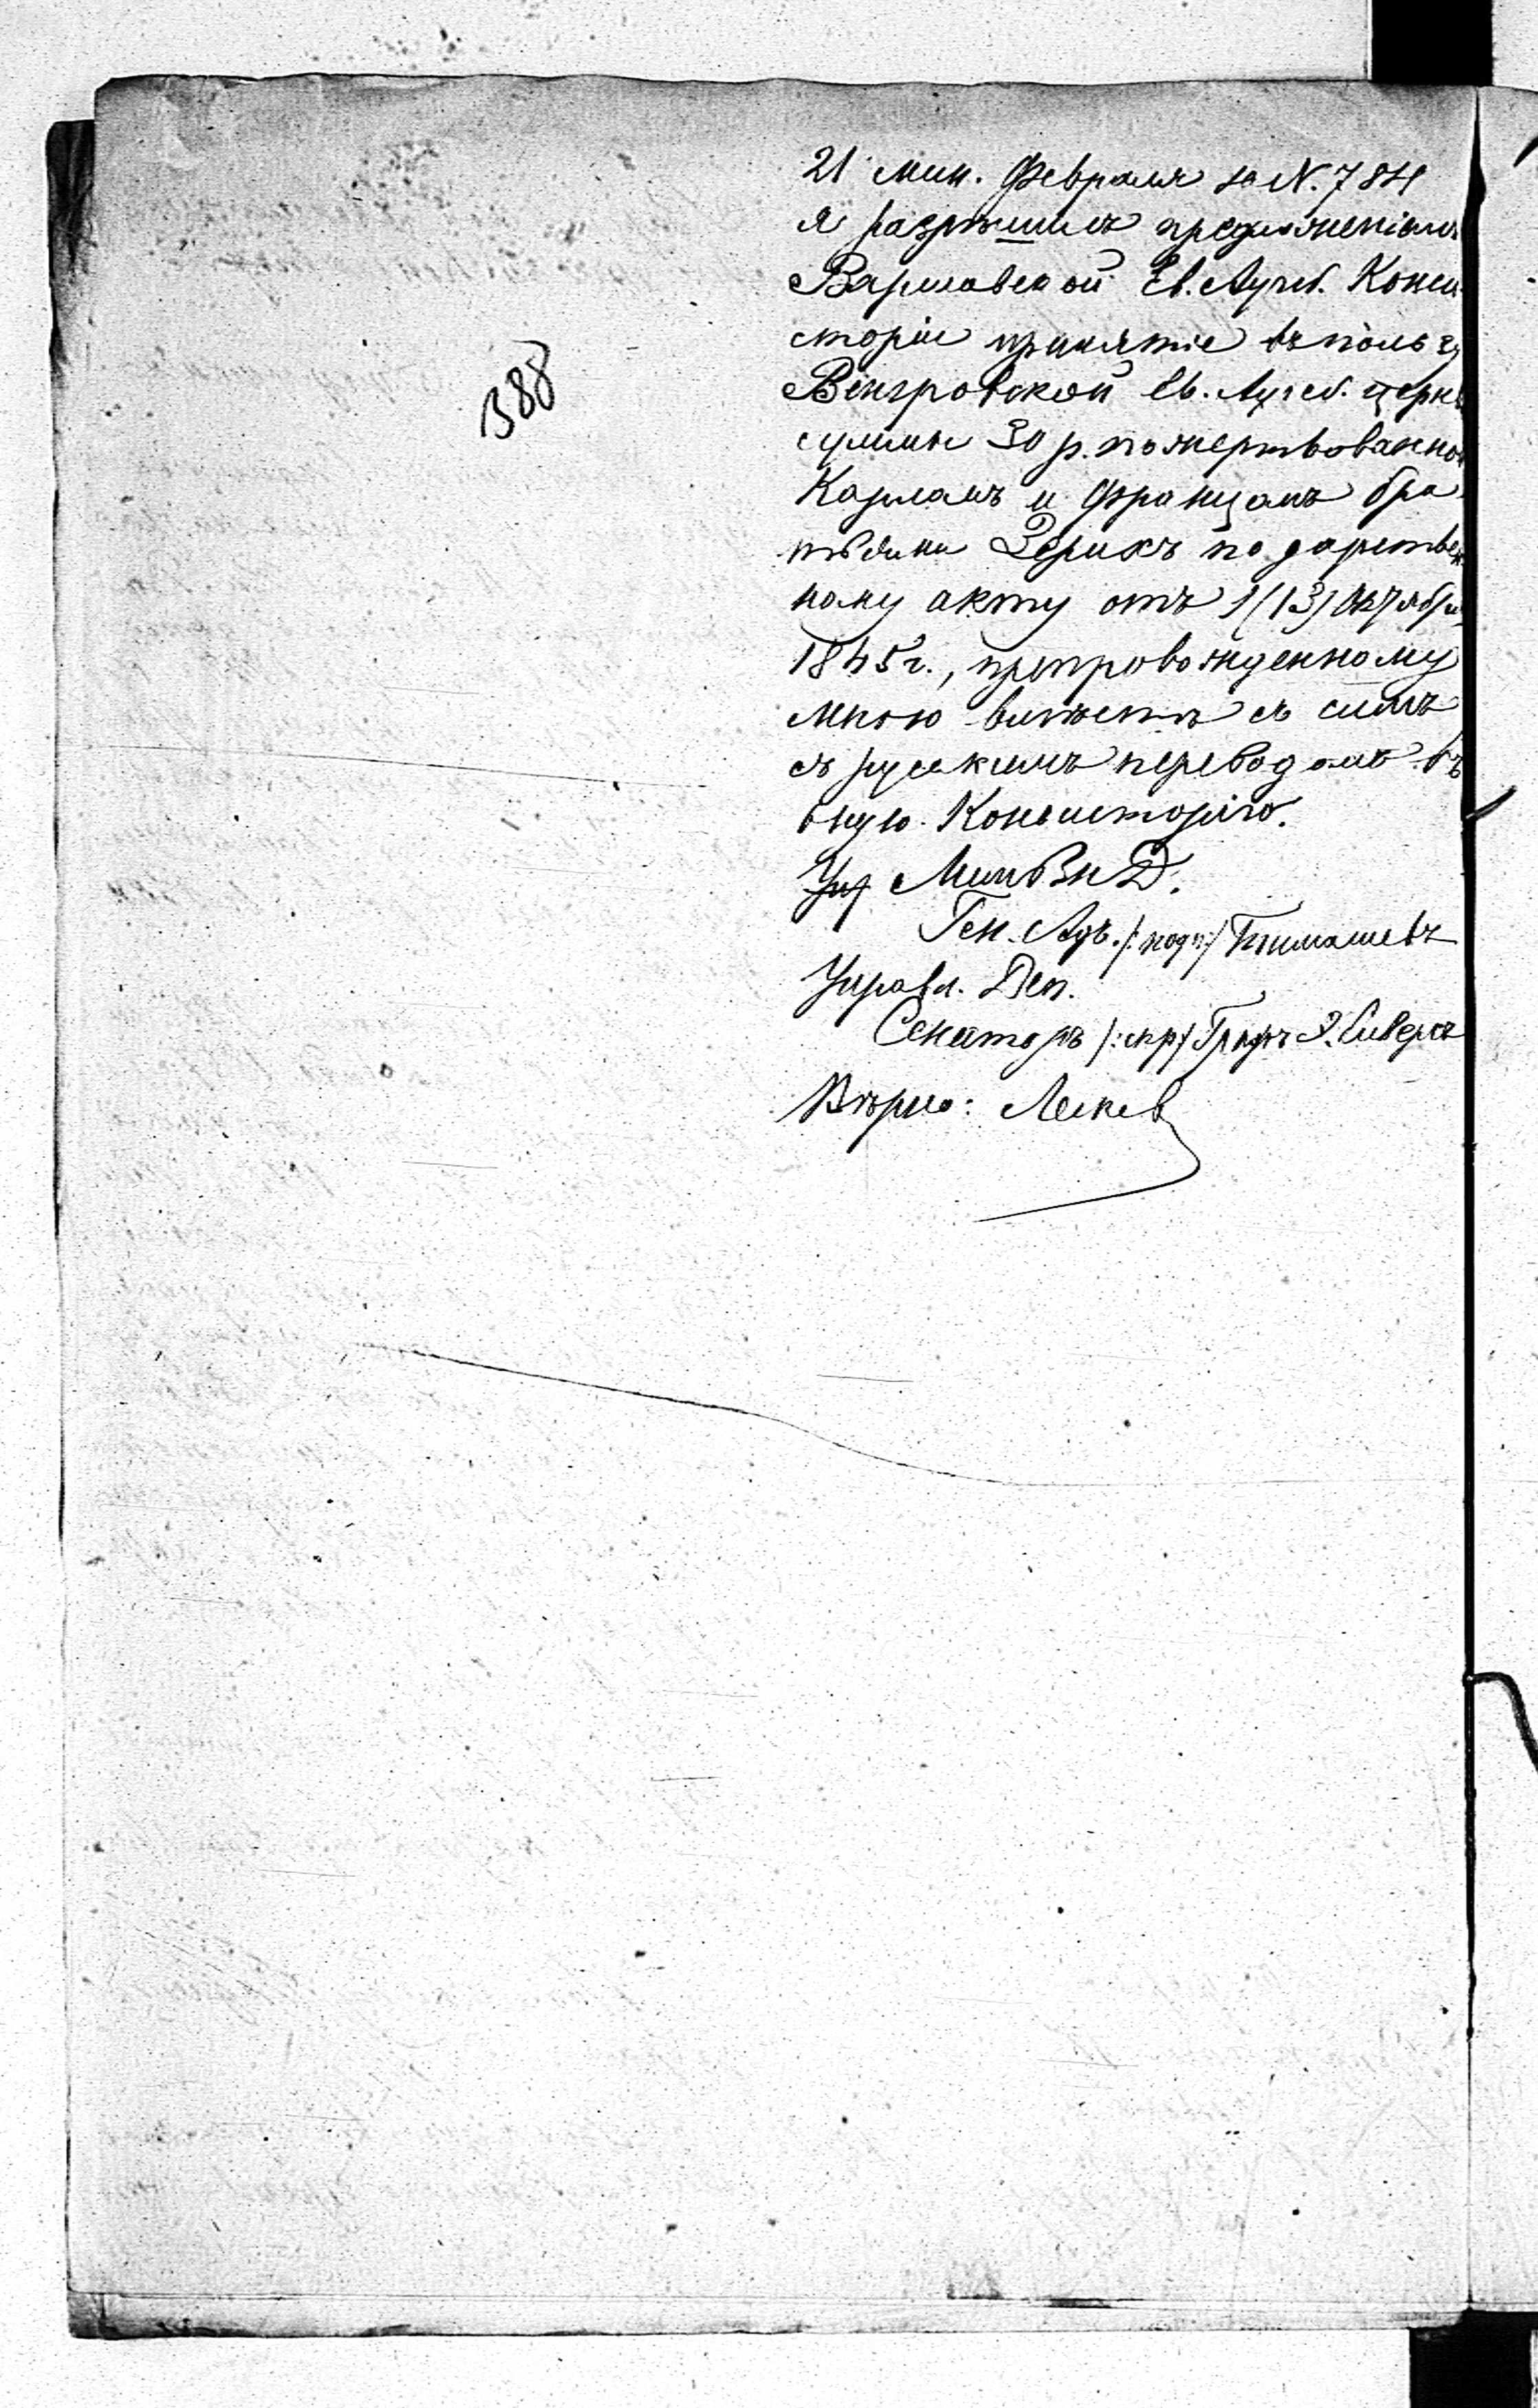 21 мин. Февраля за N. 784
я разрѣшилъ предложеніемъ
Варшавской Ев. Аугсб. Конси
сторіи принятіе въ пользу
Венгровской Ев. Аугсб. церкв
суммы 30 р. пожертвованной
Карломъ и Францомъ бра
тьями Зерихъ по дарствен
ному акту отъ 1 (13) Октября
1845 г., препровожденному
мною вмѣстѣ съ симъ
съ русскимъ переводомъ въ
оную Консисторію.
388
Упр Мин Вн Д.
Ген. Адъ. /: подп:/ Тимашевъ
Управл. Деп.
Сенаторъ /: скр:/ Графъ Э. Сиверсъ
Вѣрно: